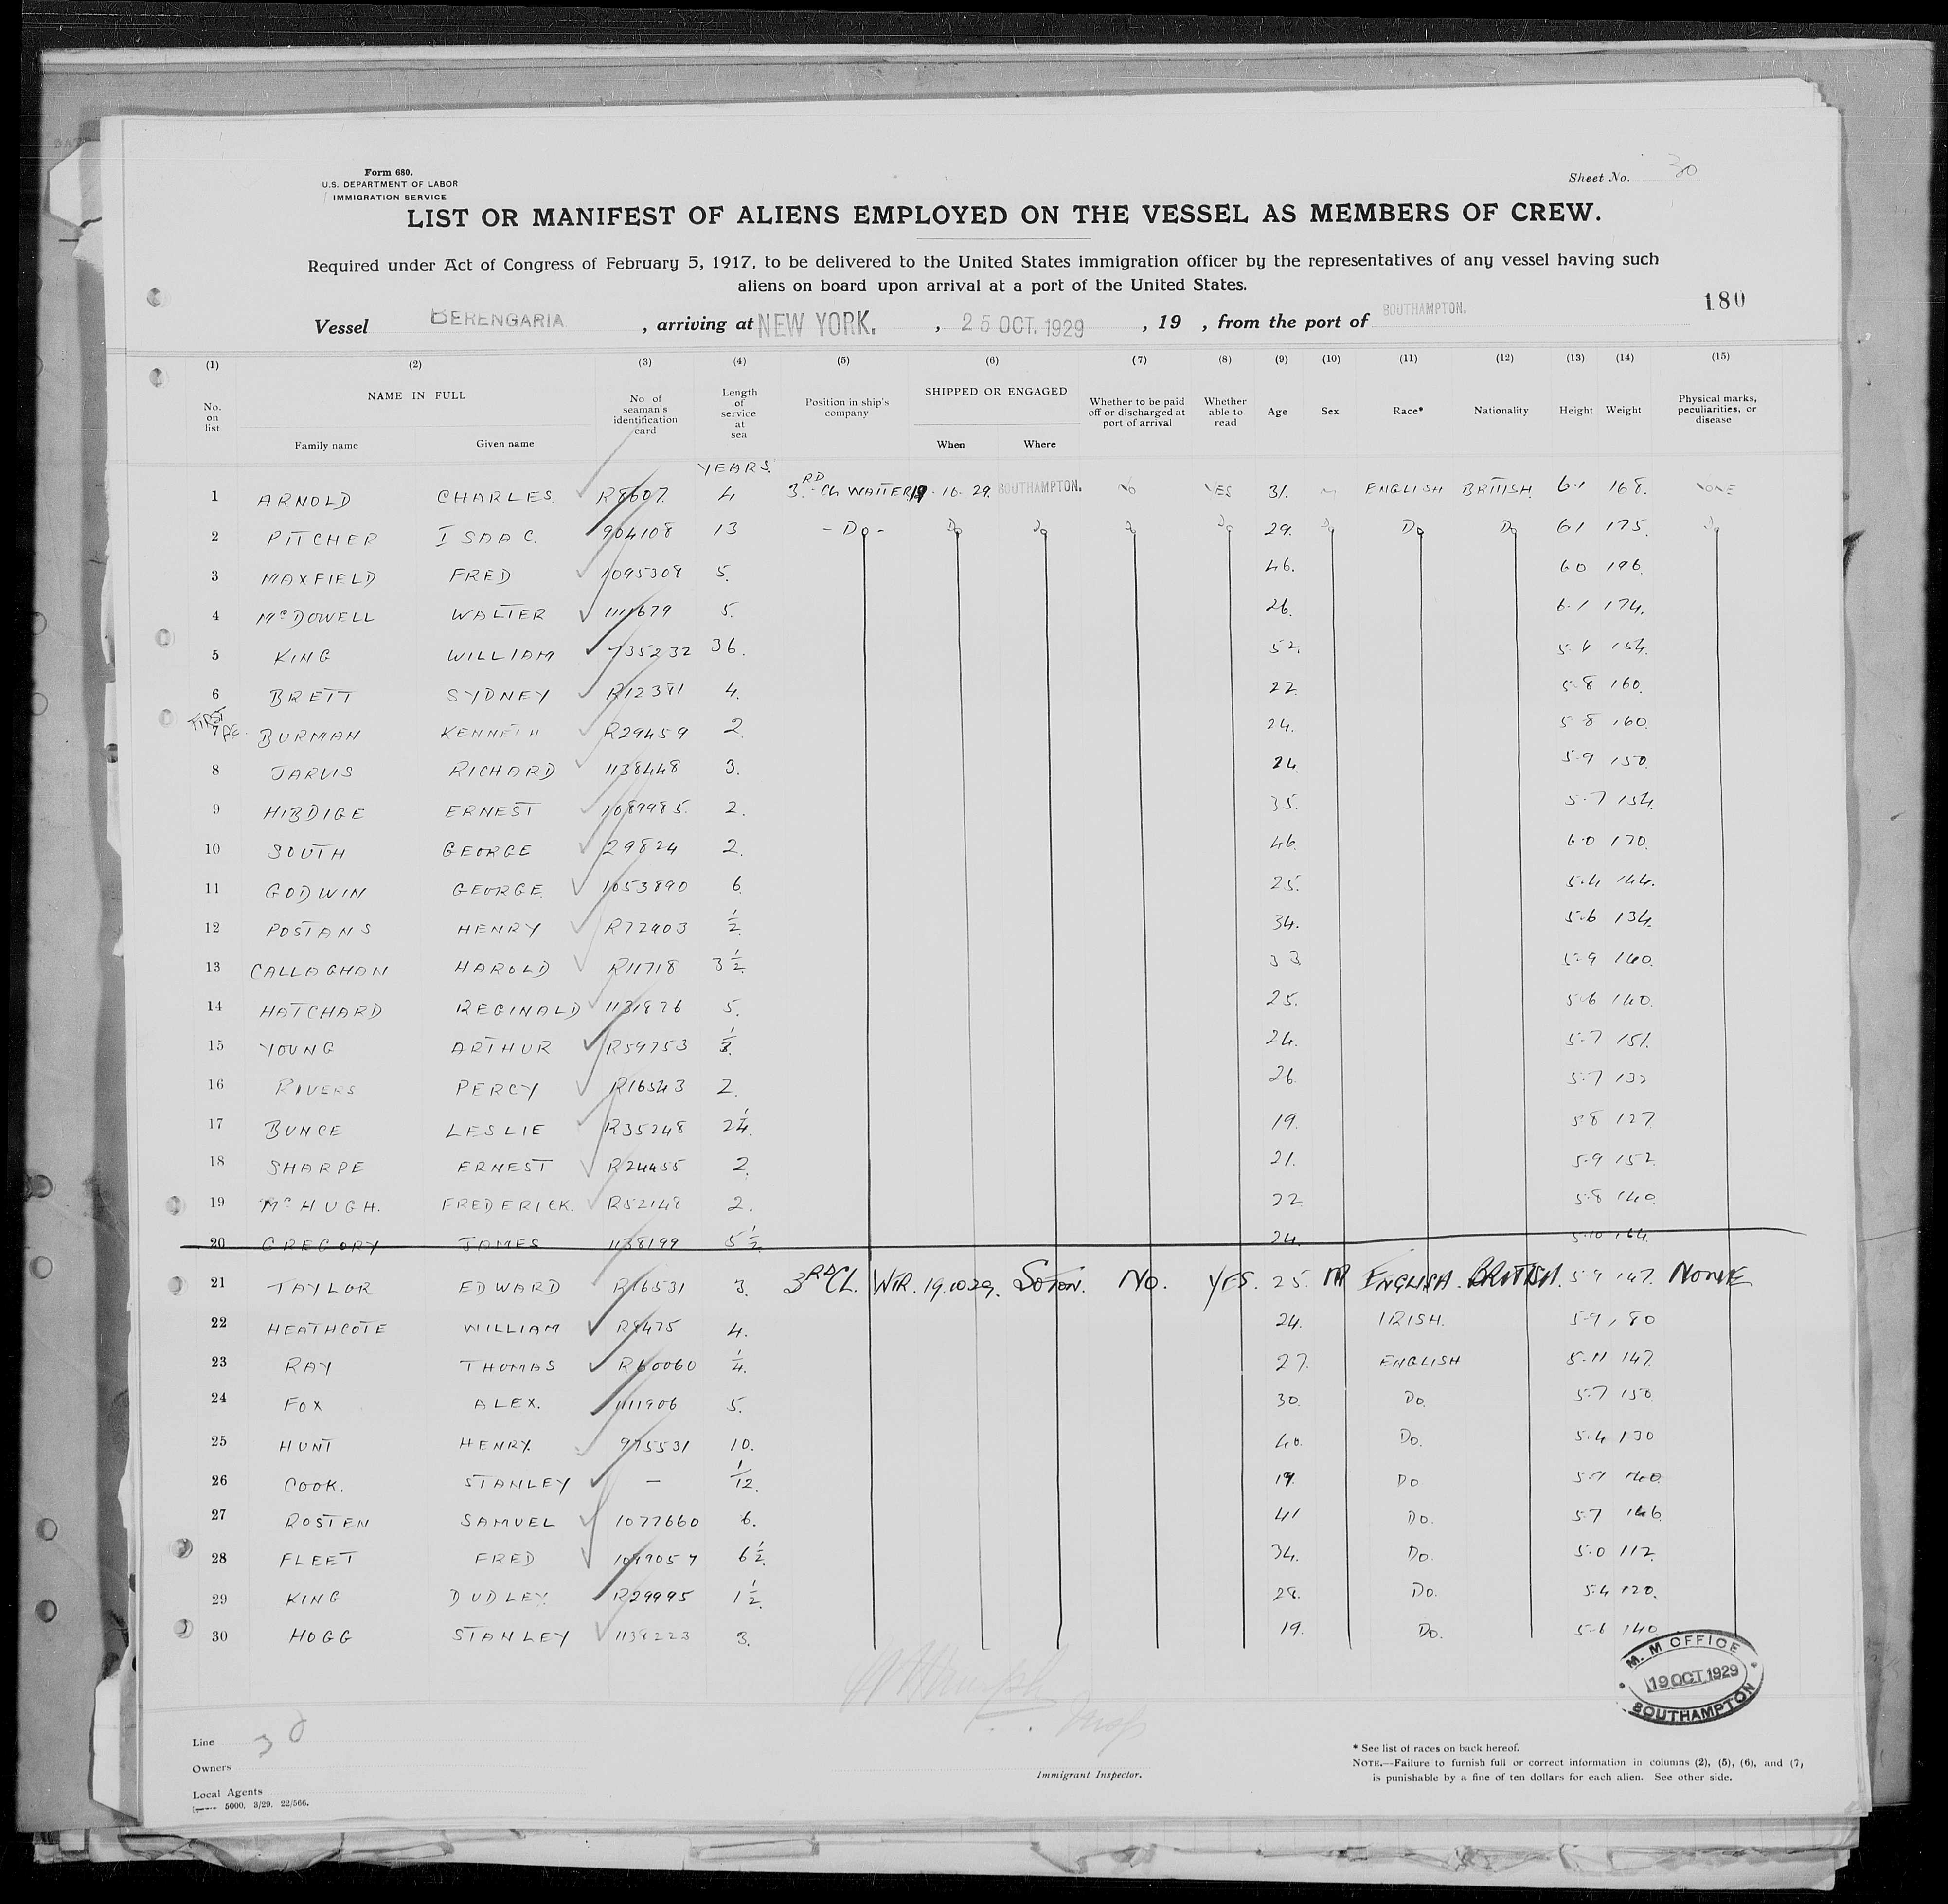 Form 680.
U.S. DEPARTMENT OF LABOR
IMMIGRATION SERVICE
Sheet No. 30
LIST OR MANIFEST OF ALIENS EMPLOYED ON THE VESSEL AS MEMBERS OF CREW.
Required under Act of Congress of February 5, 1917, to be delivered to the United States immigration officer by the representatives of any vessel having such
aliens on board upon arrival at a port of the United States.
180
Vessel BERENGARIA , arriving at NEW YORK. , 25 OCT. 1929 , 19 , from the port of SOUTHAMPTON.
(1) (2) (3) (4) (5) (6) (7) (8) (9) (10) (11) (12) (13) (14) (15)
No. on list NAME IN FULL Family name Given name No of seaman's identification card Length of service at sea Position in ship's company SHIPPED OR ENGAGED When Where Whether to be paid off or discharged at port of arrival Whether able to read Age Sex Race* Nationality Height Weight Physical marks, peculiarities, or disease
YEARS.
1 ARNOLD CHARLES. R8607 4 3RD Cl. WAITER 19.10.29. SOUTHAMPTON. No YES 31. M ENGLISH BRITISH. 6.1 168. NONE
2 PITCHER ISAAC. 904108 13 - Do - Do Do Do Do 29. Do Do Do 6.1 175. Do
3 MAXFIELD FRED 1095308 5. 46. 6.0 196
4 McDOWELL WALTER 1111679 5. 26. 6.1 174.
5 KING WILLIAM 735232 36. 52. 5.6 154.
6 BRETT SYDNEY R12381 4. 22. 5.8 160.
FIRST
7 BURMAN KENNETH R29459 2. 24. 5.8 160.
8 JARVIS RICHARD 1138448 3. 24. 5.9 150.
9 HIBDIGE ERNEST 1089985. 2. 35. 5.7 154.
10 SOUTH GEORGE 29824 2. 46. 6.0 170.
11 GODWIN GEORGE. 1053890 6. 25. 5.4 144.
12 POSTANS HENRY R72903 1/2 34. 5.6 134.
13 CALLAGHAN HAROLD R11718 3 1/2 33 5.9 160.
14 HATCHARD REGINALD 1131876 5. 25. 5.6 140.
15 YOUNG ARTHUR R59753 24. 5.7 151.
16 RIVERS PERCY R16543 2. 26. 5.7
17 BUNCE LESLIE R35248 2 1/4. 19. 5.8 127
18 SHARPE ERNEST R24455 2. 21. 5.9 152.
19 McHUGH. FREDERICK. R52148 2. 22. 5.8 140.
20 GREGORY JAMES 1138199 5 1/2 24. 5.10 164.
21 TAYLOR EDWARD R16531 3. 3RD CL. WTR. 19.10.29. SOTON. No. YES. 25. M ENGLISH. BRITISH. 5.9 147. NONE
22 HEATHCOTE WILLIAM R8475 4. 24. IRISH. 5.9 180
23 RAY THOMAS R60060 1/4. 27. ENGLISH 5.11 147.
24 FOX ALEX. 1111906 5. 30. Do. 5.7 150.
25 HUNT HENRY. 975531 10. 40. Do. 5.4 130
26 COOK. STANLEY — 1/12. 19. Do 140.
27 ROSTEN SAMUEL 1077660 6. 41 Do. 5.7 146.
28 FLEET FRED 6 1/2. 34. Do. 5.0 112.
29 KING DUDLEY. R29995 1 1/2. 28. Do. 5.4 120.
30 HOGG STANLEY 1138223 3. 19. Do. 5.6 140.
M. M OFFICE
19 OCT. 1929
SOUTHAMPTON
Line 30
Owners
Local Agents
5000. 3/29. 22/566.
Immigrant Inspector.
* See list of races on back hereof.
NOTE.—Failure to furnish full or correct information in columns (2), (5), (6), and (7),
is punishable by a fine of ten dollars for each alien. See other side.